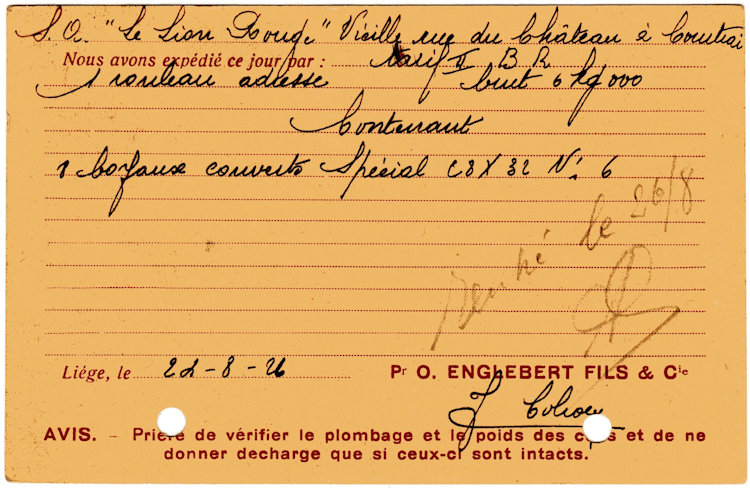 S.A. "Le Lion Rouge" Vieille rue du Château à Courtrai
Nous avons expédié ce jour par : tarif II B R
1 rouleau adresse brut 6 kg 000
Contenant
1 boyaux couverts Spécial 28 X 32 N° 6
le 26/8
Liége, le 22-8-26
Pr O. ENGLEBERT FILS & Cie
AVIS. – Prière de vérifier le plombage et le poids des colis et de ne
donner decharge que si ceux-ci sont intacts.